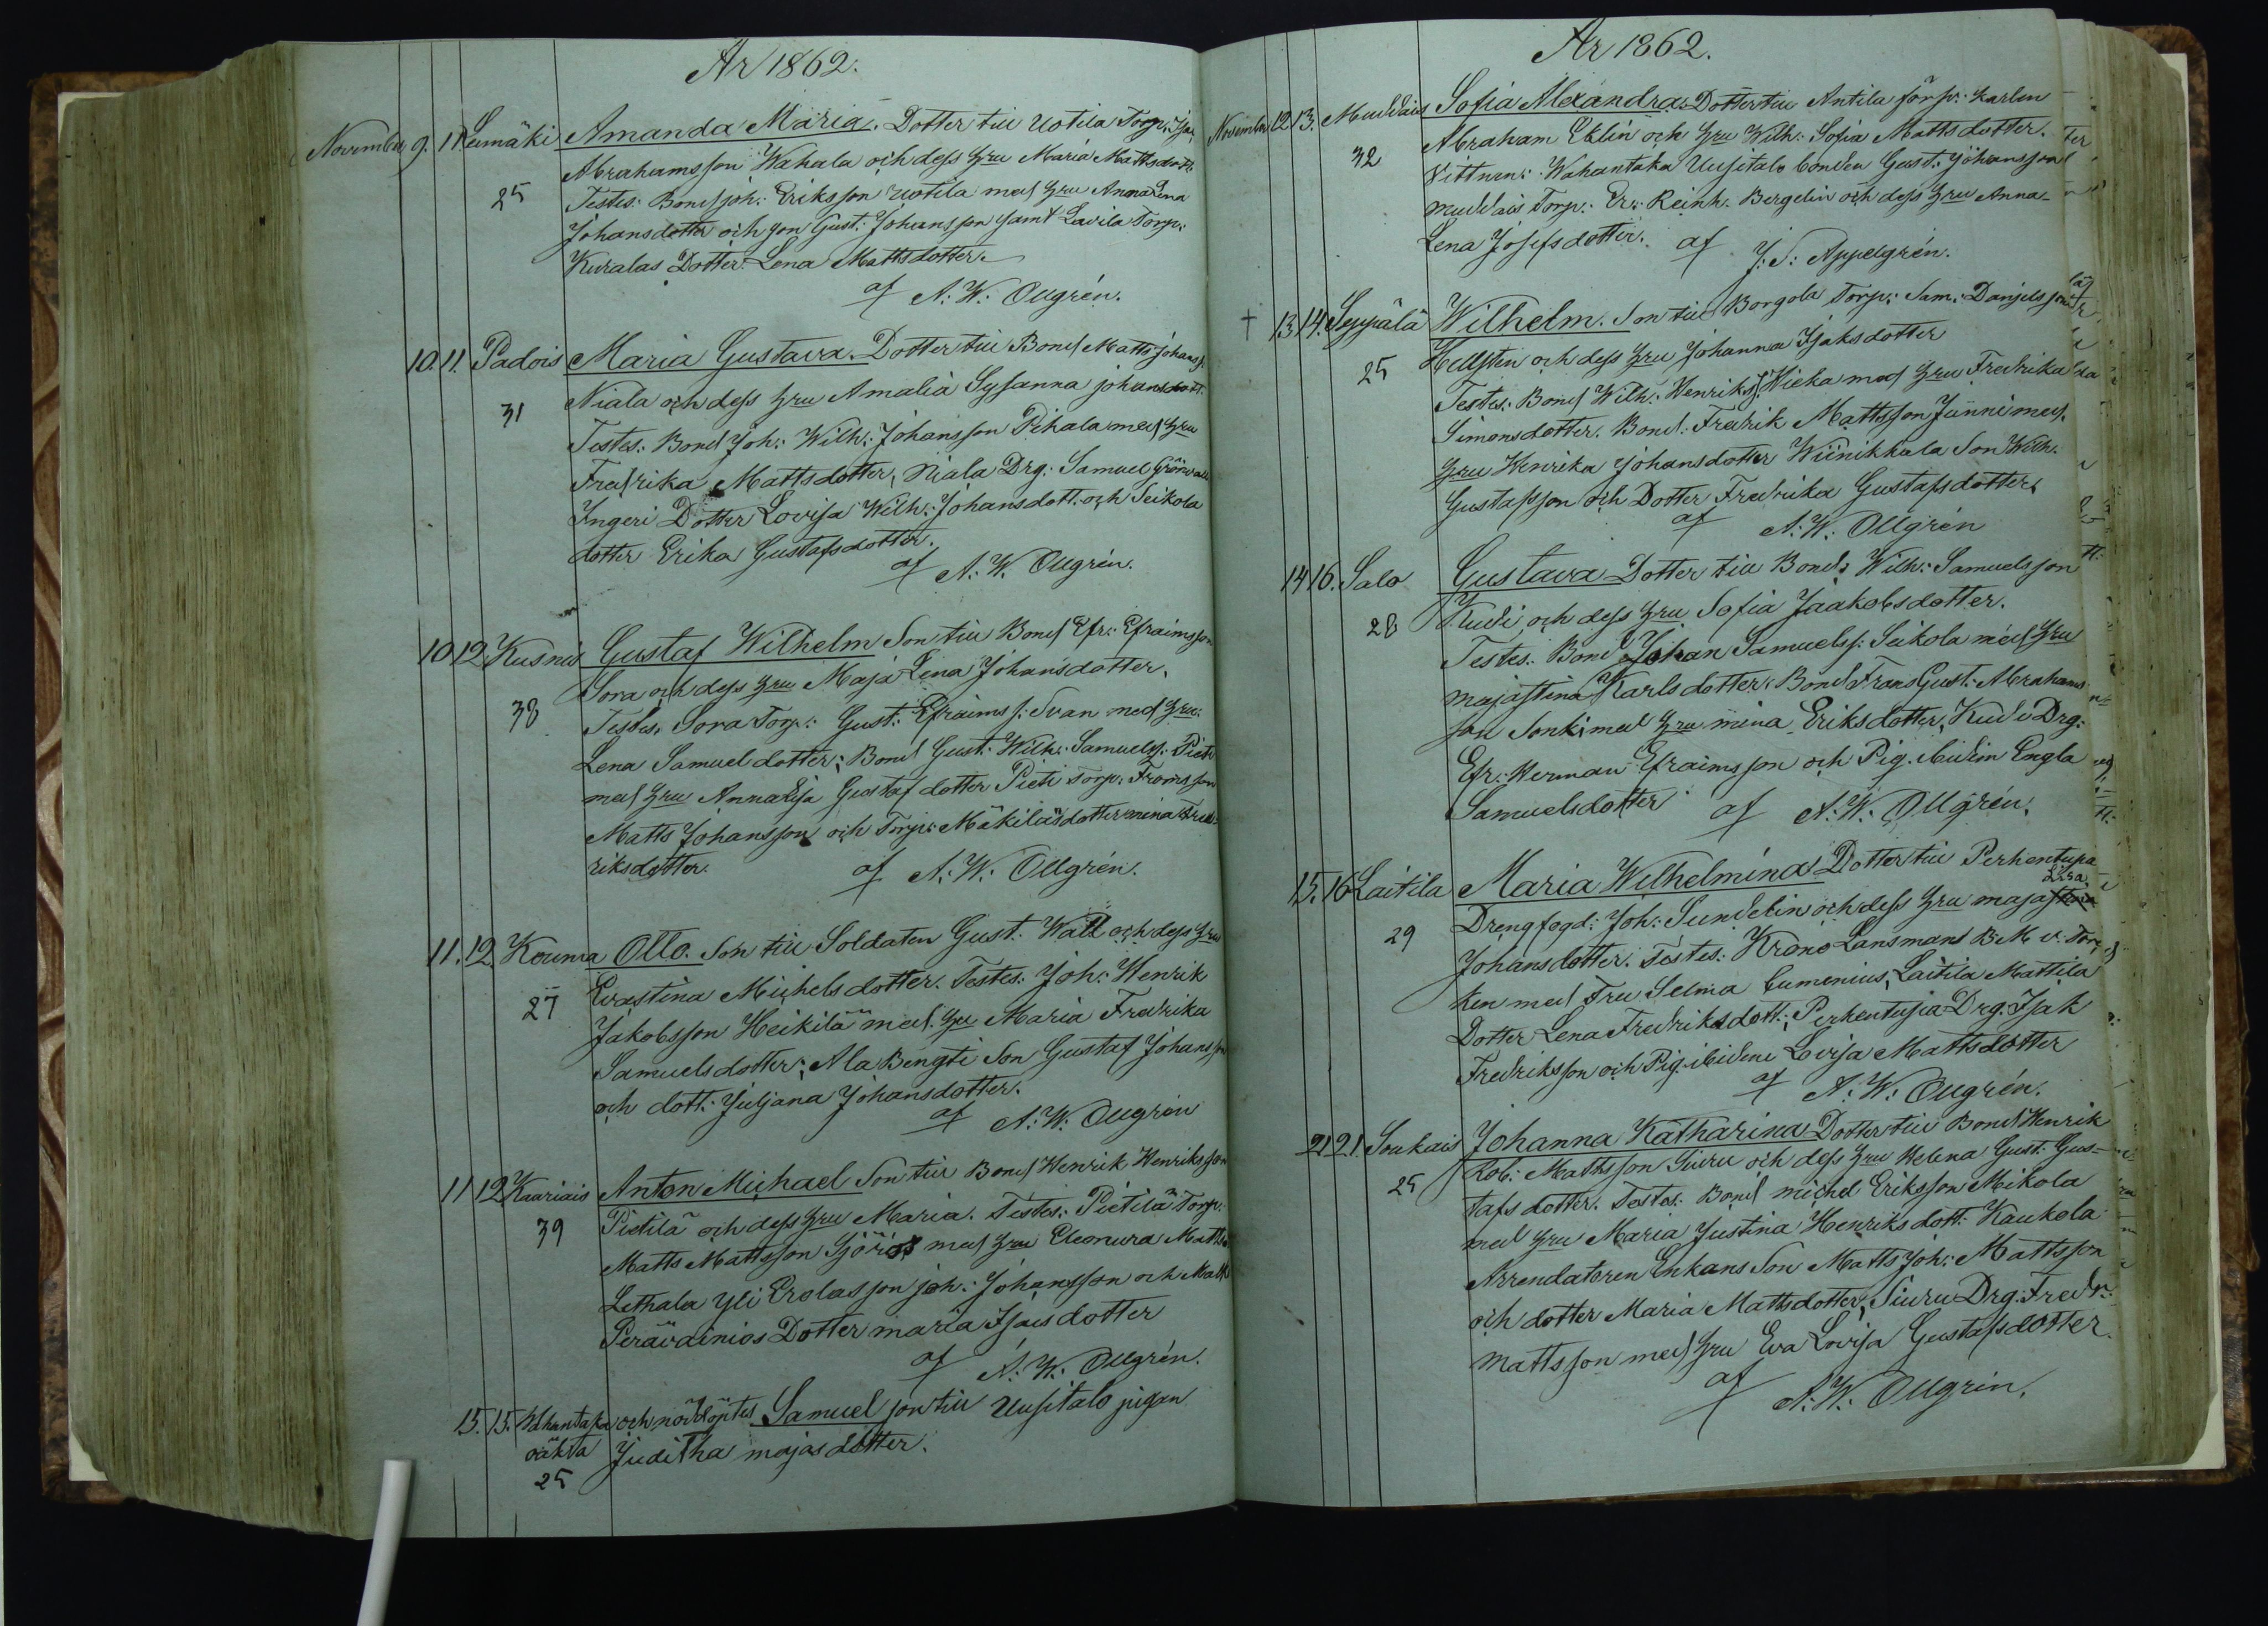 År 1862.
November 9. 11 Leinmäki Amanda Maria. Dotter till Uotila Torp: Isac
Abrahamsson Wahala och dess Hru Maria Mattsdott:
25 Testes: Bond Joh: Eriksson Uotila med Hru Anna Lena
Johansdotter och son Gust: Johansson samt Lavila Torp:
Kuralas Dotter Lena Mattsdotter.
af A: W: Ollgrén.
10. 11. Padois Maria Gustava. Dotter till Bond Matts Johanss:
Niala och dess Hru Amalia Sysanna Johansdott:
31 Testes: Bond Joh: Wilh: Johansson Pihala med Hru
Fredrika Mattsdotter, Niala Drg: Samuel Grönvall
Ingeri Dotter Lovisa Wilh: Johansdott: och Seikola
dotter Erika Gustafsdotter.
af A: W: Ollgrén.
10 12 Kusnis Gustaf Wilhelm Son till Bond Efr: Efraimsson
Sora och dess Hru Maja Lena Johansdotter.
38 Testes. Sora Torp: Gust: Efraims s: Svan med Hru
Lena Samuel dotter; Bond Gust: Wilh: Samuelss: Pieti
med Hru Anna Lisa Gustaf dotter Pieti Torp:
Matts Johansson och Torp: Mäkiläs dotter mina Fred-
riksdotter.
af A: W: Ollgrén.
11. 12. Kouma Otto. Son till Soldaten Gust: Wall och dess Hru
27 Evastina Michelsdotter. Testes: Joh: Henrik
Jakobsson Heikilä med Hru Maria Fredrika
Samuelsdotter; Ala Bengti Son Gustaf Johansson
och dott: Juljana Johansdotter.
af A: W: Ollgrén
11 12 Kaariais Anton Michael Son till Bond Henrik Henriksson
39 Pietilä och dess Hru Maria. Testes: Pietilä Torp:
Matts Mattsson Sjöroos med Hru Eleonora Matts
Yli Erolas son Joh: Johansson och
Perävainios Dotter maria Isacsdotter
af A: W: Ollgrén.
15. 15. Wahantaka och nöddöptes Samuel son till Uusitalo pigan
oäkta Juditha majasdotter.
25
År 1862.
November 12 13. Muldais Sofia Alexandra Dotter till Antila förp: Karlen
32 Abraham Eklin och Hru Wilh: Sofia Mattsdotter.
Vittnen: Wahantaka Uusitalo bonden Gust: Johansson
Muldais Torp: Er: Reinh. Bergelin och dess Hru Anna-
Lena Josefsdotter. af J: S: Appelgrén.
† 13 14. Seppälä Wilhelm. Son till Borgola Torp: Sam: Danjelsson
25 Hellsten och dess Hru Johanna Isaksdotter
Testes: Bond Wilh: Henriks: Wieka med Hru Fredrika
Simonsdotter. Bond: Fredrik Mattsson Junni med
Hru Henrika Johansdotter Wiinikkala Son Wilh:
Gustafsson och Dotter Fredrika Gustafsdotter
af A: W: Ollgrén
14 16. Salo Gustava Dotter till Bond: Wilh: Samuelsson
28 Kudi och dess Hru Sofia Jaakobsdotter.
Testes: Bond Johan Samuelss: Seikola med Hru
Majastina Karlsdotter. Bond Frans Gust: Abrahams
son Sonki med Hru mina Eriksdotter, Kudi Drg:
Efr: Herman Efraimsson och Pig. ibidem Engla
Samuelsdotter af A: W: Ollgrén.
15. 16. Laitila Maria Wilhelmina Dotter till Perhentupa
29 Drengfogd: Joh: Sundelin och dess Hru maja Lisa
Johansdotter. Testes: Krono Länsmans B. M. v. Tor
ken med Fru Selma Cumenius, Laitila Mattila
Dotter Lena Fredriksdott:; Perhentupa Drg. Isak
Fredriksson och Pig. ibidem Lovisa Mattsdotter
af A: W: Ollgrén.
21 21 Soukais Johanna Katharina Dotter till Bond Henrik
25 Rob: Mattsson Siuru och dess Hru Helena Gust: Gus-
tafsdotter. Testes: Bond michel Eriksson Mikola
med Hru Maria Justina Henriksdott: Kaukola
Arrendatoren Enkans Son Matts Joh: Mattsson
och dotter Maria Mattsdotter, Siuru Drg: Fredr:
Mattsson med Hru Eva Lovisa Gustafsdotter.
af A: W: Ollgrén.